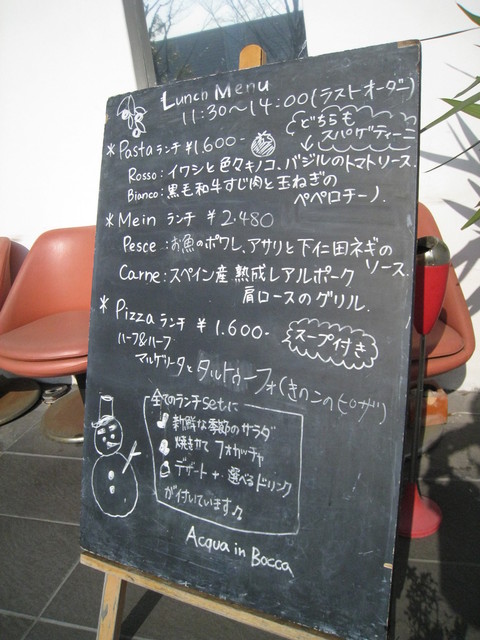 Lunch Menu
11:30〜14:00(ラストオーダー)
*Pastaランチ ¥1.600-
どちらも
スパゲティーニ
Rosso:イワシと色々キノコ、バジルのトマトソース.
Bianco:黒毛和牛すじ肉と玉ねぎの
ペペロチーノ.
*Mein ランチ ¥2.480
Pesce:お魚のポワレ、アサリと下仁田ネギの
ソース.
Carne:スペイン産 熟成レアルポーク
肩ロースのグリル.
*Pizzaランチ ¥1.600-
スープ付き
ハーフ&ハーフ
マルゲリータとタルトゥーフォ(きのこのピザ)
全てのランチsetに
新鮮な季節のサラダ
焼きたてフォカッチャ
デザート+選べるドリンク
が付いています♫
Acqua in Bocca